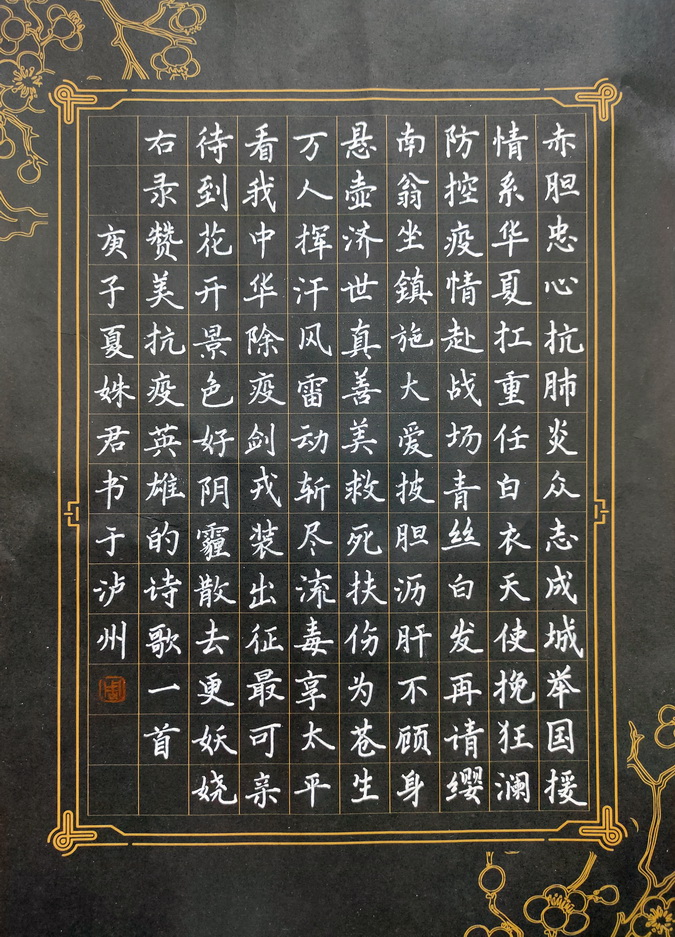 赤胆忠心抗肺炎众志成城举国援
情系华夏扛重任白衣天使挽狂澜
防控疫情赴战场青丝白发再请缨
南翁坐鎮施大爱披胆沥肝不顾身
悬壶济世真善美救死扶伤为苍生
万人挥汗风雷动斩尽流毒享太平
看我中华除疫剑戎装出征最可亲
待到花开景色好阴霾散去更妖娆
右录赞美抗疫英雄的诗歌一首
庚子夏姝君书于泸州